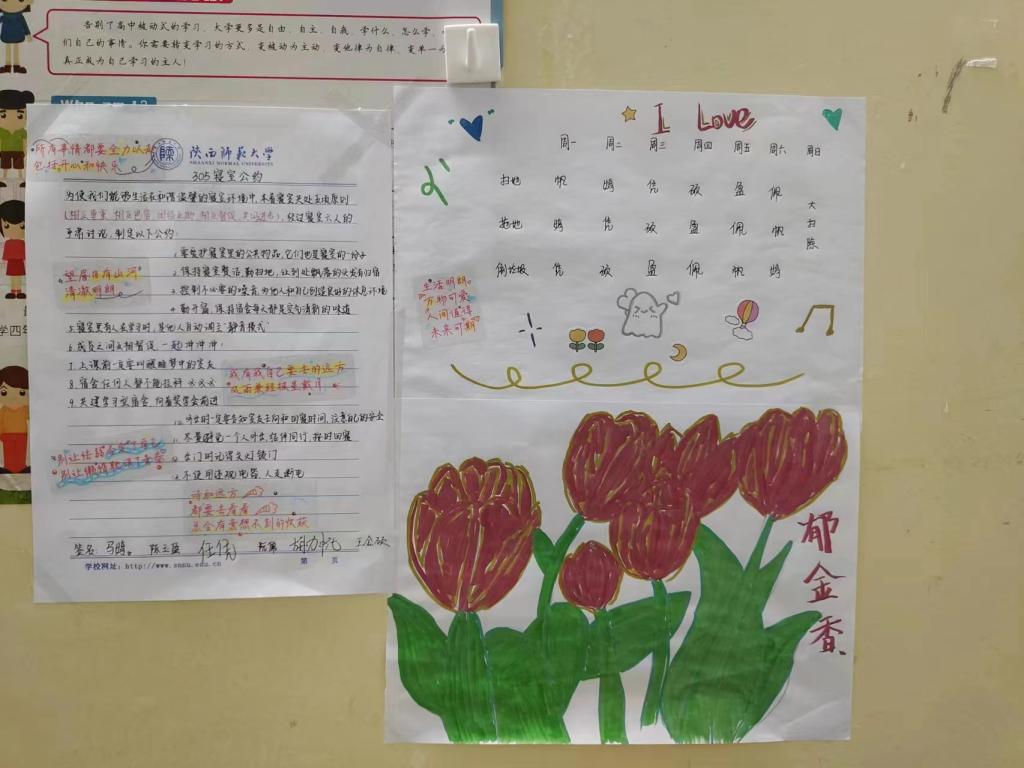 告别了高中被动式的学习，大学更多是自由、自主、自我，学什么、怎么学，
们自己的事情。你需要转变学习的方式，变被动为主动，变他律为自律，变单一为
真正成为自己学习的主人！
所有事情都要全力以赴
包括开心和快乐
陕西师范大学
SHAANXI NORMAL UNIVERSITY
305寝室公约
为使我们能够生活在和谐温馨的寝室环境中，本着寝室共处五项原则
经过寝室六人的
严肃讨论，制定以下公约：
1.要爱护寝室里的公共物品，它们也是寝室的一份子
2.保持寝室整洁，勤扫地，让到处飘落的头发有归宿
3.控制不必要的噪音，为他人和自己创造良好的休息环境
4.勤开窗，保持宿舍每天都是空气清新的味道
5.寝室里有人在学习时，其他人自动调至"静音模式"
6.成员之间互相督促，一起冲冲冲！
7.上课前一定要叫醒睡梦中的室友
8.宿舍任何人都不能挂科
9.共建学习型宿舍，向着奖学金前进
10.外出时一定要告知室友去向和回寝时间，注意自己的安全
11.尽量避免一个人外出，结伴同行，按时回寝
12.出门时记得关灯锁门
13.不使用违规电器，人走断电
望眼自有山河
清澈明朗
我有我自己要去的远方
诗和远方
都要去看看
总会有意想不到的收获
签名：马骋 陈玉盈 任凭
学校网址：http://www.snnu.edu.cn 第 页
I Love
周一 周二 周三 周四 周五 周六 周日
扫地 帆 骋 凭 孩 盈 佩
拖地 骋 凭 孩 盈 佩 帆
倒垃圾 凭 孩 盈 佩 帆 骋
大扫除
生活明朗
万物可爱
人间值得
未来可期
郁金香